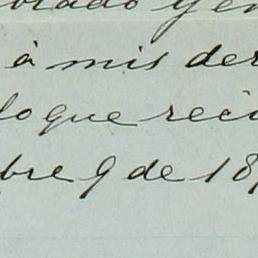 brado y en
à mis der
lo que reci
bre 9 de 18